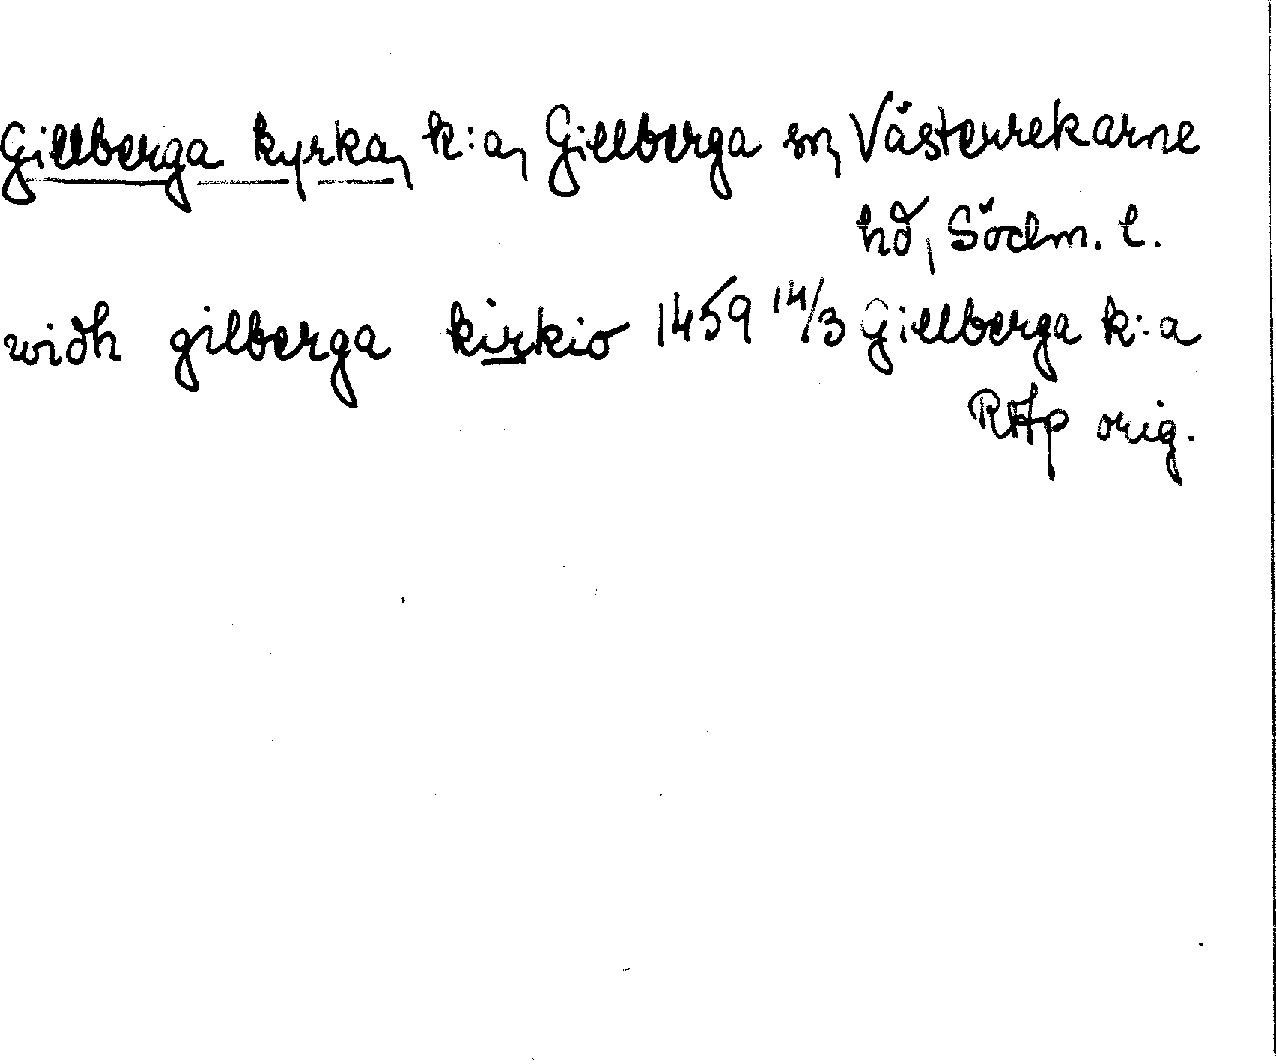 Gillberga kyrka, k:a, Gillberga sn, Västerrekarne
hd, Södm. l.
widh gilberga kirkio 1459 14/3 Gillberga k:a
RAp orig.